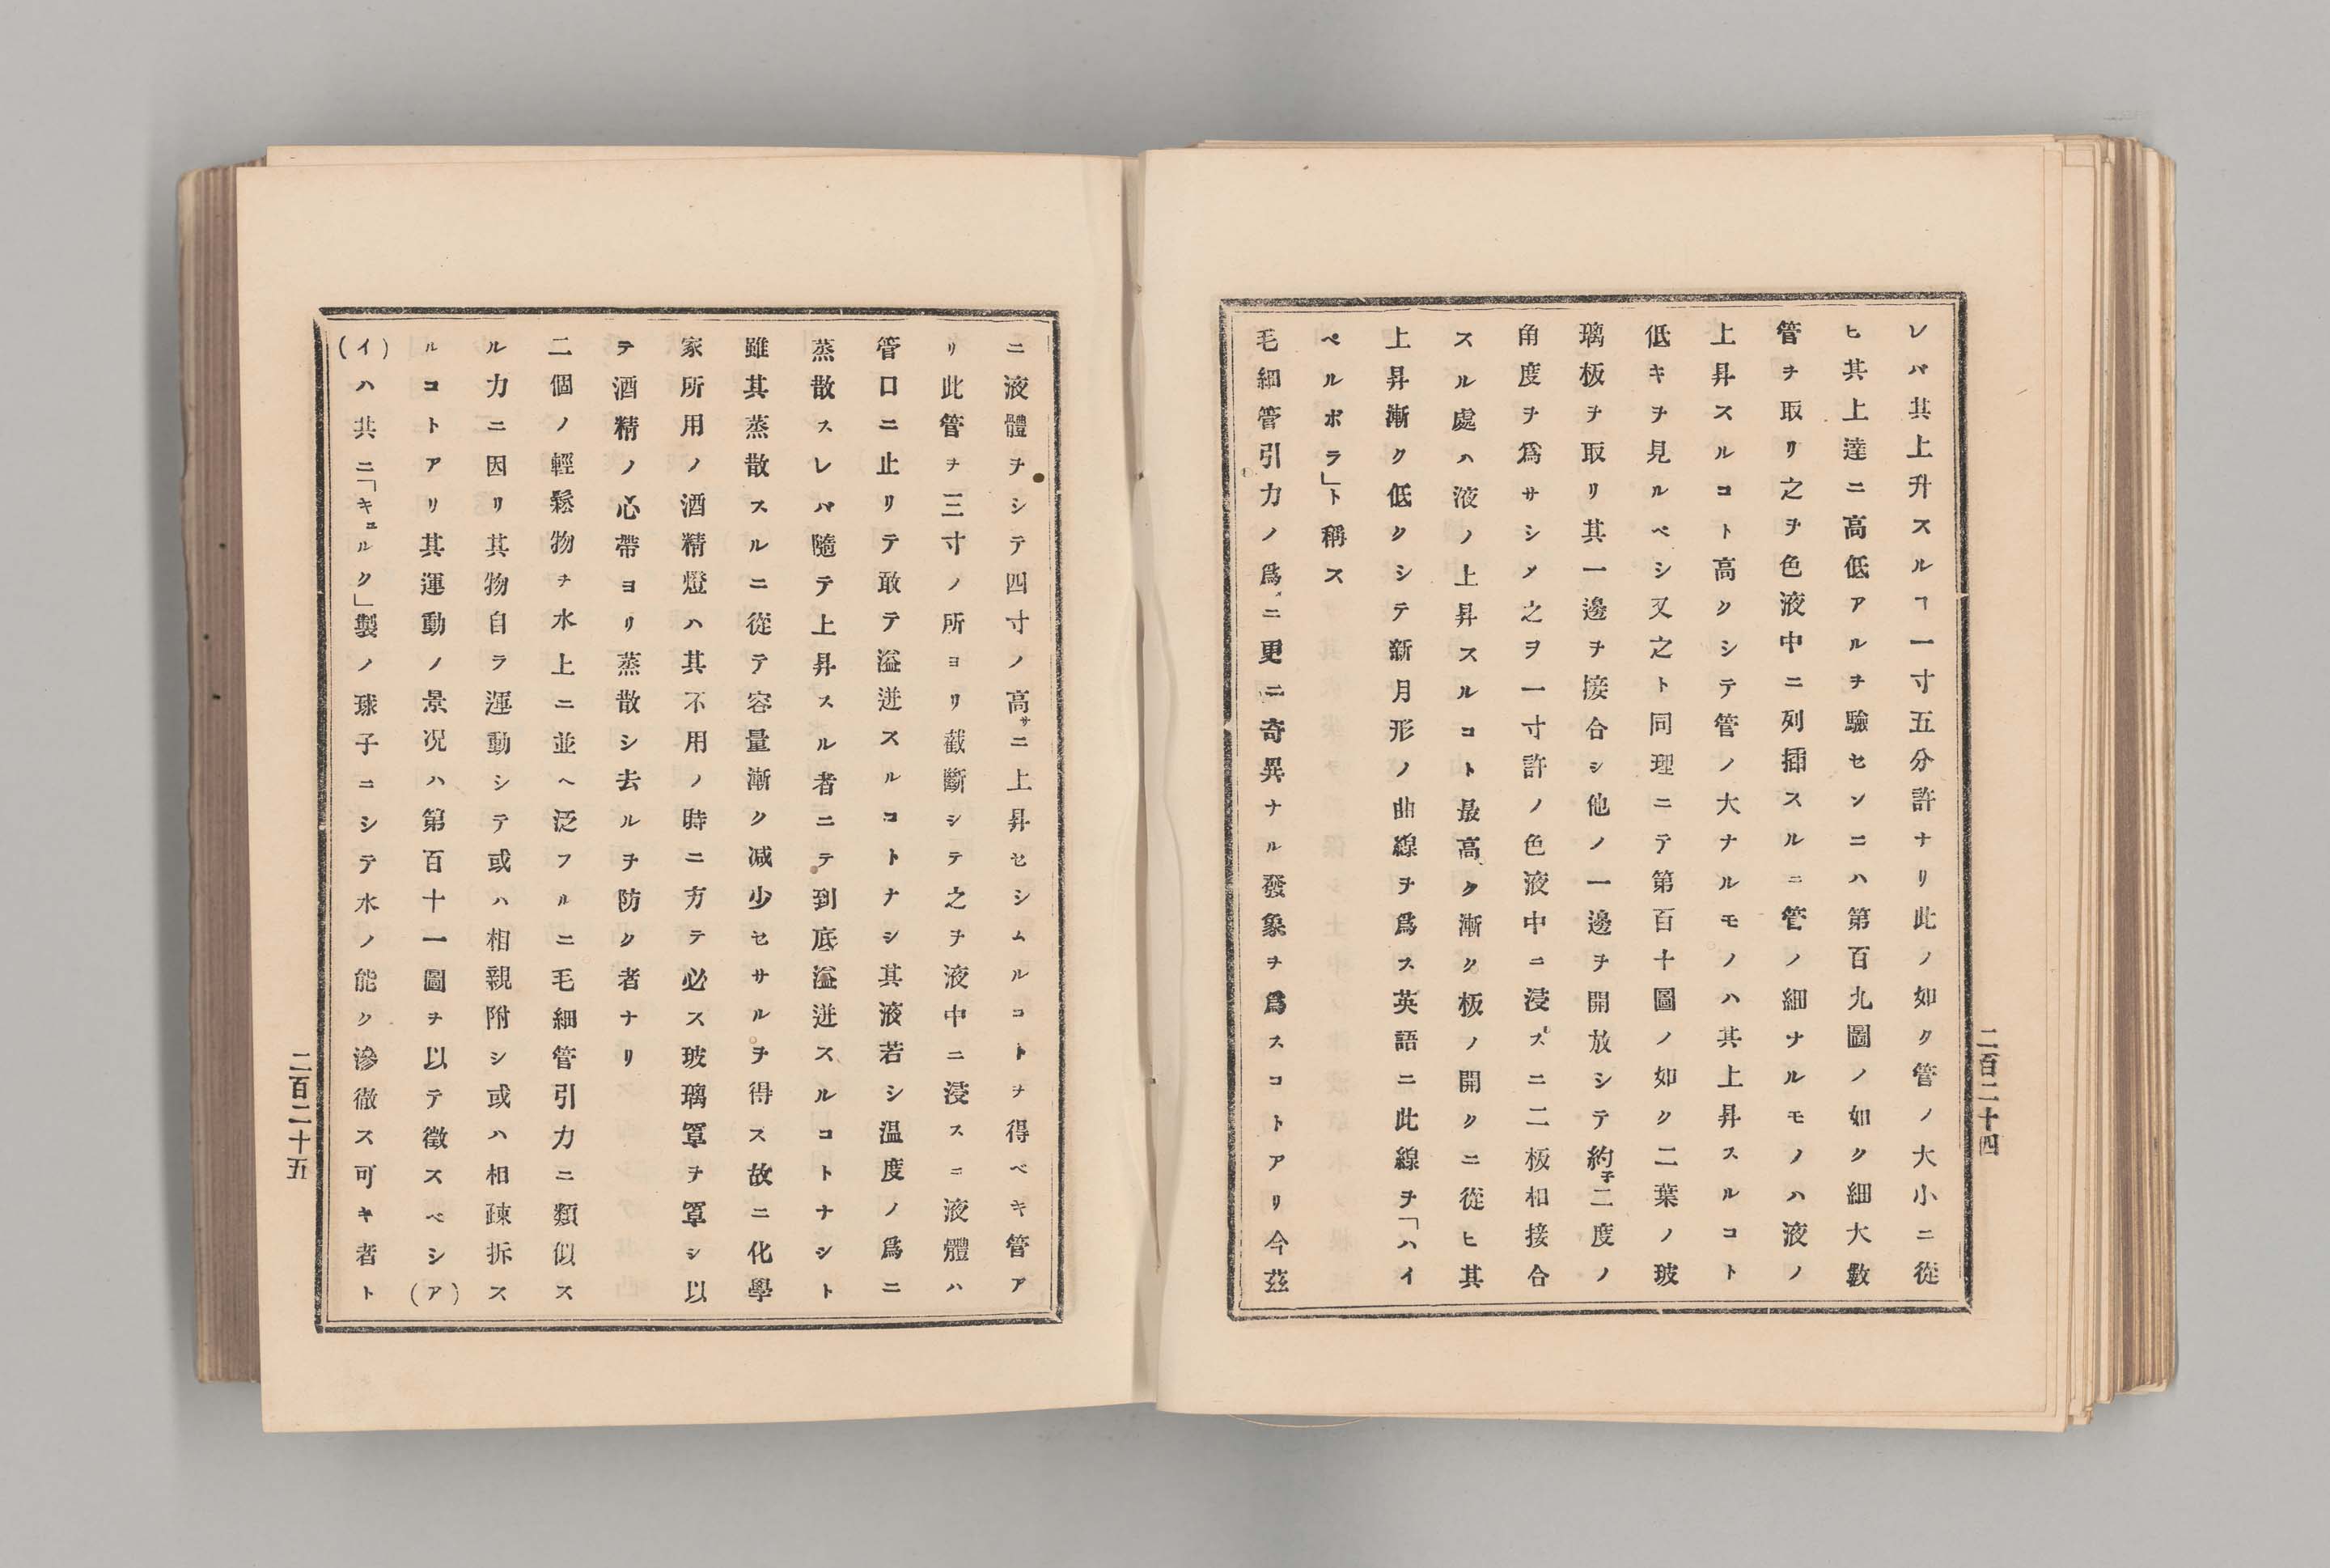 レバ其上升スルヿ一寸五分許ナリ此ノ如ク管ノ大小ニ從
ヒ其上達ニ高低アルヲ驗センニハ第百九圖ノ如ク細大數
管ヲ取リ之ヲ色液中ニ列揷スルニ管ノ細ナルモノハ液ノ
上昇スルコト高クシテ管ノ大ナルモノハ其上昇スルコト
低キヲ見ルベシ又之ト同理ニテ第百十圖ノ如ク二葉ノ玻
璃板ヲ取リ其一邊ヲ接合シ他ノ一邊ヲ開放シテ約子二度ノ
角度ヲ爲サシメ之ヲ一寸許ノ色液中ニ浸スニ二板相接合
スル處ハ液ノ上昇スルコト最高ク漸ク板ノ開クニ從ヒ其
上昇漸ク低クシテ新月形ノ曲線ヲ爲ス英語ニ此線ヲ「ハイ
ペルボラ」ト稱ス
毛細管引力ノ爲ニ更ニ奇異ナル發象ヲ爲スコトアリ今茲
二百二十四
ニ液體ヲシテ四寸ノ高サニ上昇セシムルコトヲ得ベキ管ア
リ此管ヲ三寸ノ所ヨリ截斷シテ之ヲ液中ニ浸スニ液體ハ
管口ニ止リテ敢テ溢迸スルコトナシ其液若シ温度ノ爲ニ
蒸散スレバ隨テ上昇スル者ニテ到底溢迸スルコトナシト
雖其蒸散スルニ從テ容量漸ク减少セサルヲ得ス故ニ化學
家所用ノ酒精燈ハ其不用ノ時ニ方テ必ス玻璃罩ヲ罩シ以
テ酒精ノ心帶ヨリ蒸散シ去ルヲ防ク者ナリ
二個ノ輕鬆物ヲ水上ニ並ヘ泛フルニ毛細管引力ニ類似ス
ル力ニ因リ其物自ラ運動シテ或ハ相親附シ或ハ相疎拆ス
ルコトアリ其運動ノ景况ハ第百十一圖ヲ以テ徵スベシ(ア)
(イ)ハ共ニ「キュルク」製ノ球子ニシテ水ノ能ク滲徹ス可キ者ト
二百二十五